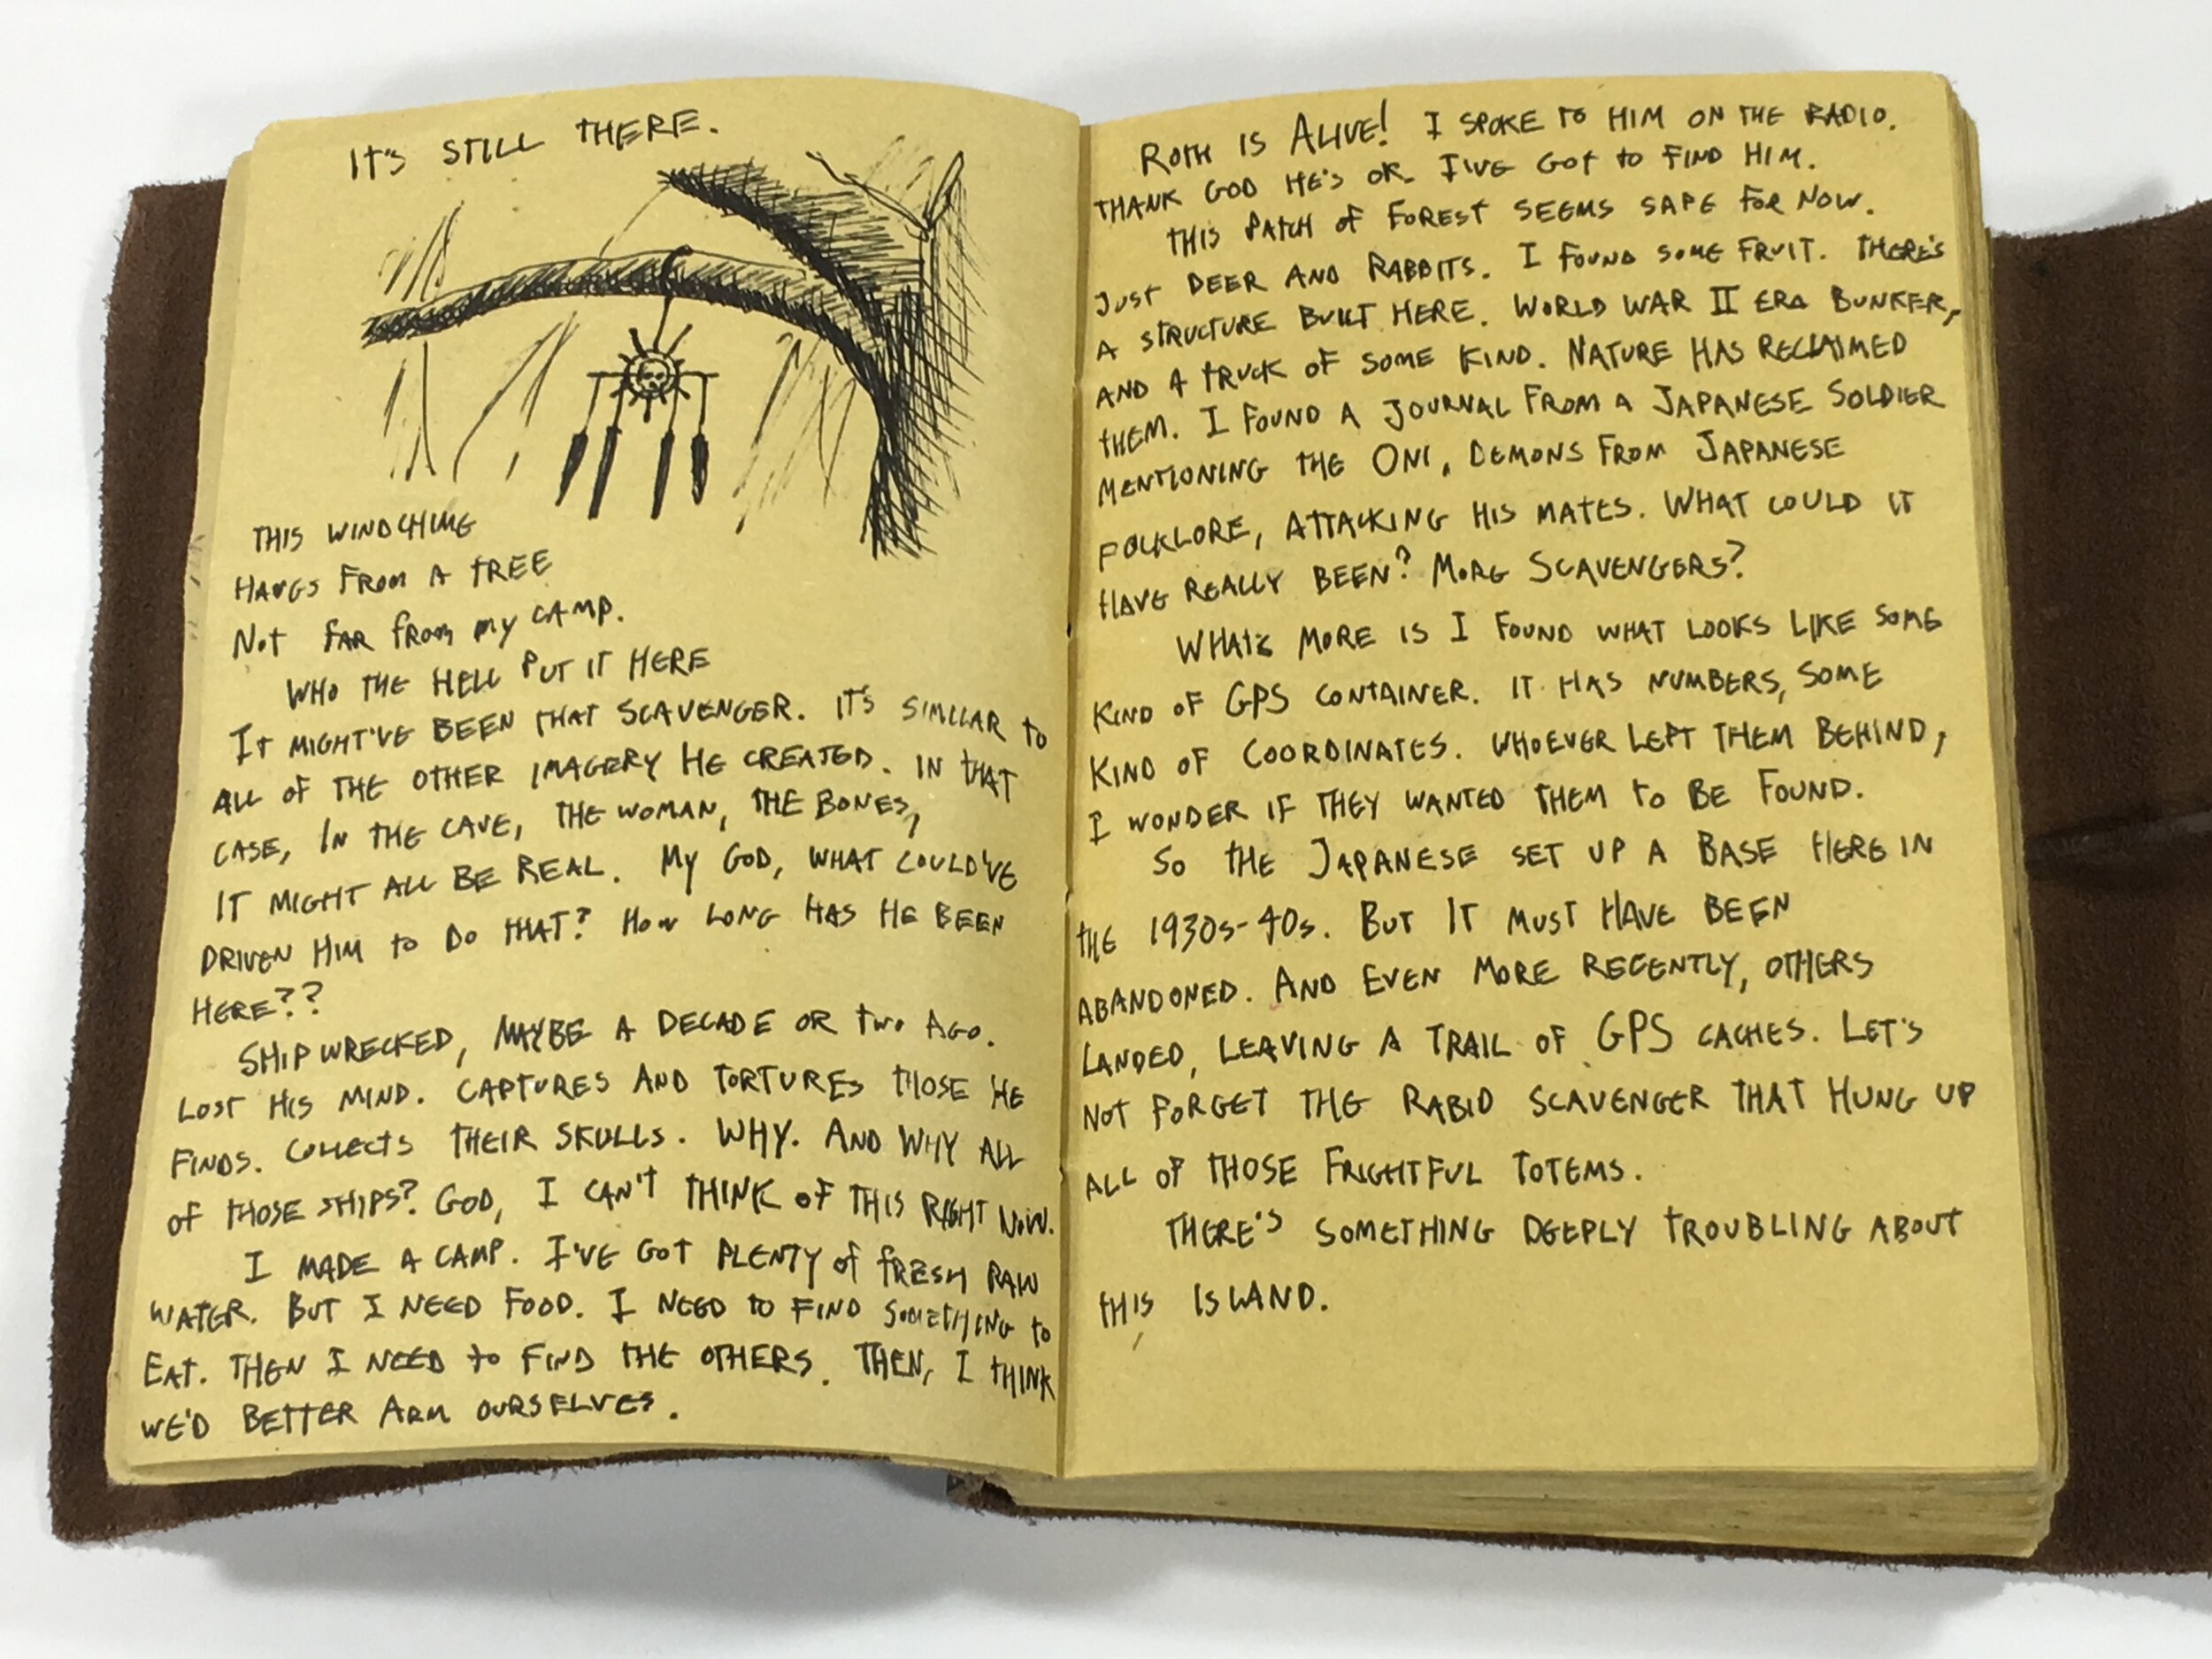 IT'S STILL THERE.
THIS WINDCHIME
HANGS FROM A TREE
NOT FAR FROM MY CAMP.
WHO THE HELL PUT IT HERE
IT MIGHT'VE BEEN THAT SCAVENGER. IT'S SIMILAR TO
ALL OF THE OTHER IMAGERY HE CREATED. IN THAT
CASE, IN THE CAVE, THE WOMAN, THE BONES,
IT MIGHT ALL BE REAL. MY GOD, WHAT COULD'VE
DRIVEN HIM TO DO THAT? HOW LONG HAS HE BEEN
HERE??
SHIPWRECKED, MAYBE A DECADE OR TWO AGO.
LOST HIS MIND. CAPTURES AND TORTURES THOSE HE
FINDS. COLLECTS THEIR SKULLS. WHY. AND WHY ALL
OF THOSE SHIPS? GOD, I CAN'T THINK OF THIS RIGHT NOW.
I MADE A CAMP. I'VE GOT PLENTY OF FRESH RAW
WATER. BUT I NEED FOOD. I NEED TO FIND SOMETHING TO
EAT. THEN I NEED TO FIND THE OTHERS. THEN, I THINK
WE'D BETTER ARM OURSELVES.
ROTH IS ALIVE! I SPOKE TO HIM ON THE RADIO.
THANK GOD HE'S OK. I'VE GOT TO FIND HIM.
THIS PATCH OF FOREST SEEMS SAFE FOR NOW.
JUST DEER AND RABBITS. I FOUND SOME FRUIT. THERE'S
A STRUCTURE BUILT HERE. WORLD WAR II ERA BUNKER,
AND A TRUCK OF SOME KIND. NATURE HAS RECLAIMED
THEM. I FOUND A JOURNAL FROM A JAPANESE SOLDIER
MENTIONING THE ONI, DEMONS FROM JAPANESE
FOLKLORE, ATTACKING HIS MATES. WHAT COULD IT
HAVE REALLY BEEN? MORE SCAVENGERS?
WHAT'S MORE IS I FOUND WHAT LOOKS LIKE SOME
KIND OF GPS CONTAINER. IT HAS NUMBERS, SOME
KIND OF COORDINATES. WHOEVER LEFT THEM BEHIND,
I WONDER IF THEY WANTED THEM TO BE FOUND.
SO THE JAPANESE SET UP A BASE HERE IN
THE 1930s-40s. BUT IT MUST HAVE BEEN
ABANDONED. AND EVEN MORE RECENTLY, OTHERS
LANDED, LEAVING A TRAIL OF GPS CACHES. LET'S
NOT FORGET THE RABID SCAVENGER THAT HUNG UP
ALL OF THOSE FRIGHTFUL TOTEMS.
THERE'S SOMETHING DEEPLY TROUBLING ABOUT
THIS ISLAND.